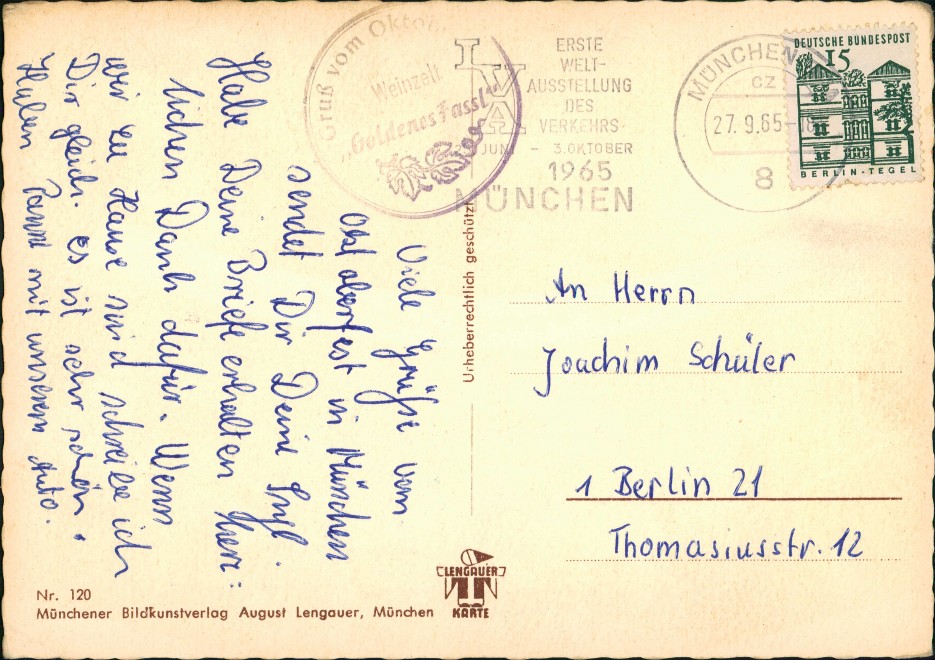 Viele Grüße vom
Oktoberfest in München
sendet Dir Deine
Habe Deine Briefe erhalten herz-
lichen Dank dafür. Wenn
wir zu Hause sind schreibe ich
Dir gleich. Es ist sehr schön.
Haben Panne mit unserem Auto.
Gruß vom Oktob
Weinzelt
„Goldenes Fassl"
IVA
ERSTE
WELT-
AUSSTELLUNG
DES
VERKEHRS
JUNI - 3. OKTOBER
1965
MÜNCHEN
MÜNCHEN
CZ
27. 9. 65-
8
DEUTSCHE BUNDESPOST
15
BERLIN-TEGEL
Urheberrechtlich geschützt
An Herrn
Joachim Schüler
1 Berlin 21
Thomasiusstr. 12
Nr. 120
Münchener Bildkunstverlag August Lengauer, München
LENGAUER
KARTE